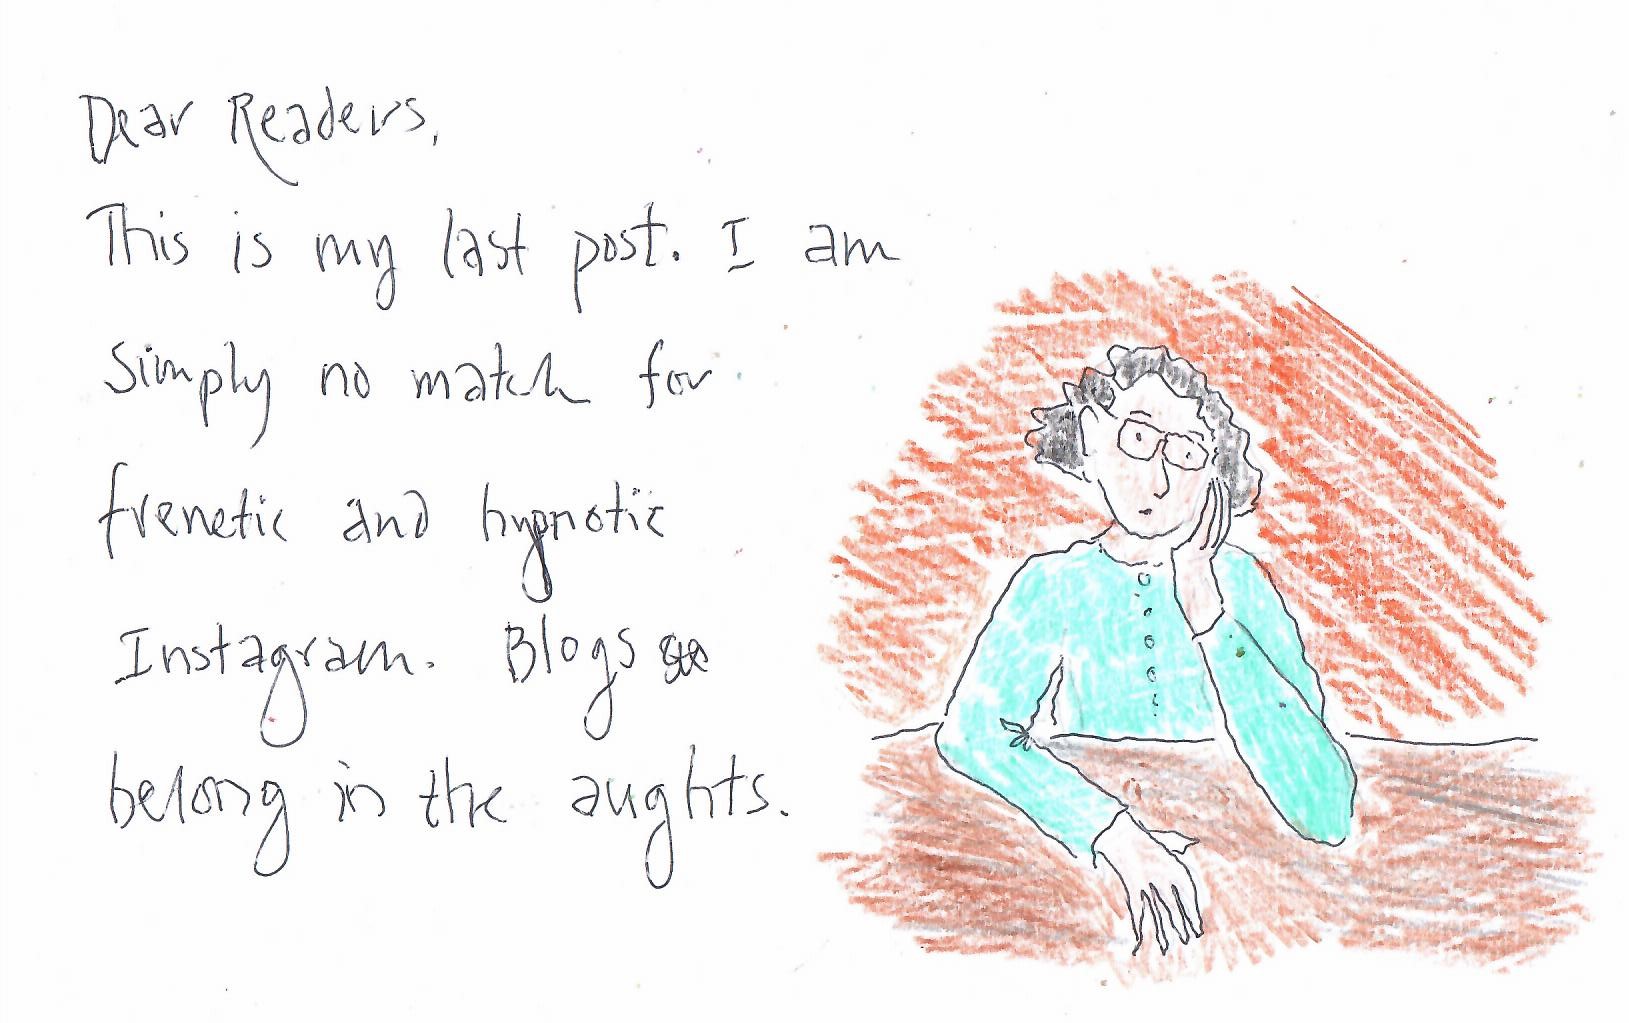 Dear Readers,
This is my last post. I am
simply no match for
frenetic and hypnotic
Instagram. Blogs
belong in the aughts.